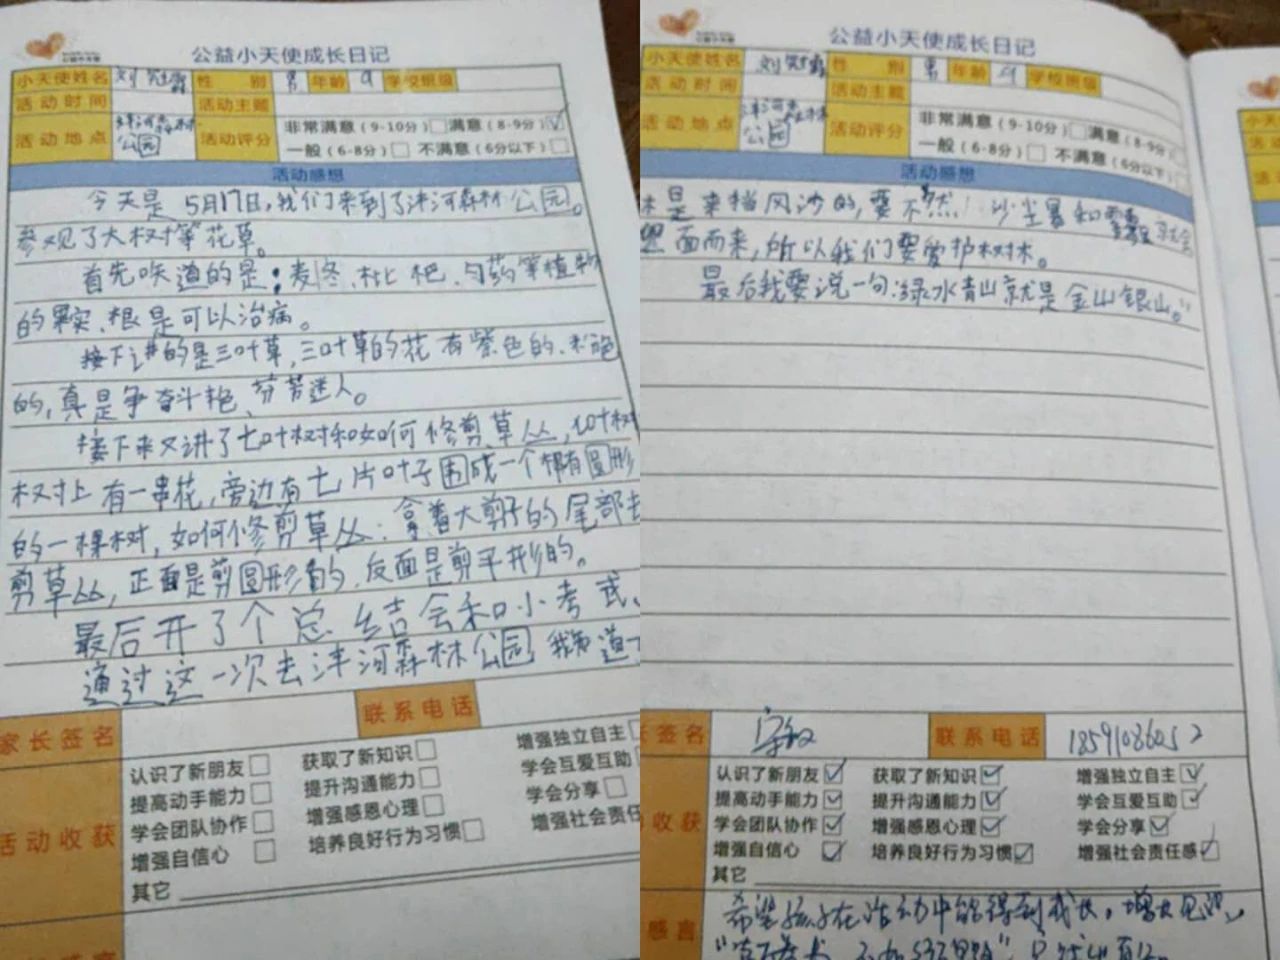 公益小天使成长日记
小天使姓名 刘冠霖 性别 男 年龄 9 学校班级
活动时间 活动主题
活动地点 沣河森林公园 活动评分 非常满意（9-10分）□ 满意（8-9分）☑
一般（6-8分）□ 不满意（6分以下）□
活动感想
今天是5月17日,我们来到了沣河森林公园。
参观了大树等花草。
首先味道的是:麦冬、枇杷、勺药等植物
的果实、根是可以治病。
接下讲的是三叶草,三叶草的花有紫色的、粉色
的,真是争奋斗艳、芬芳迷人。
接下来又讲了七叶树和如何修剪草丛,七叶树
树上有一串花,旁边有七片叶子围成一个椭圆形
的一棵树,如何修剪草丛:拿着大剪子的尾部去
剪草丛,正面是剪圆形的,反面是剪平形的。
最后开了个总结会和小考试、
通过这一次去沣河森林公园 我知道了
家长签名 联系电话
活动收获
认识了新朋友□ 获取了新知识□ 增强独立自主□
提高动手能力□ 提升沟通能力□ 学会互爱互助
学会团队协作□ 增强感恩心理□ 学会分享□
增强自信心□ 培养良好行为习惯□ 增强社会责任
其它
公益小天使成长日记
小天使姓名 刘冠霖 性别 男 年龄 9 学校班级
活动时间 活动主题
活动地点 沣河森林公园 活动评分 非常满意（9-10分）□ 满意（8-9分）
一般（6-8分）□ 不满意（6分以下）
活动感想
木是来档风沙的,要不然!沙尘暴和雾霾就会
面而来,所以我们要爱护树木。
最后我要说一句:绿水青山就是金山银山。”
签名 联系电话
收获
认识了新朋友☑ 获取了新知识☑ 增强独立自主☑
提高动手能力☑ 提升沟通能力☑ 学会互爱互助☑
学会团队协作☑ 增强感恩心理☑ 学会分享☑
增强自信心☑ 培养良好行为习惯☑ 增强社会责任感☑
其它
感言
希望孩子在活动中能得到成长,增长见识,